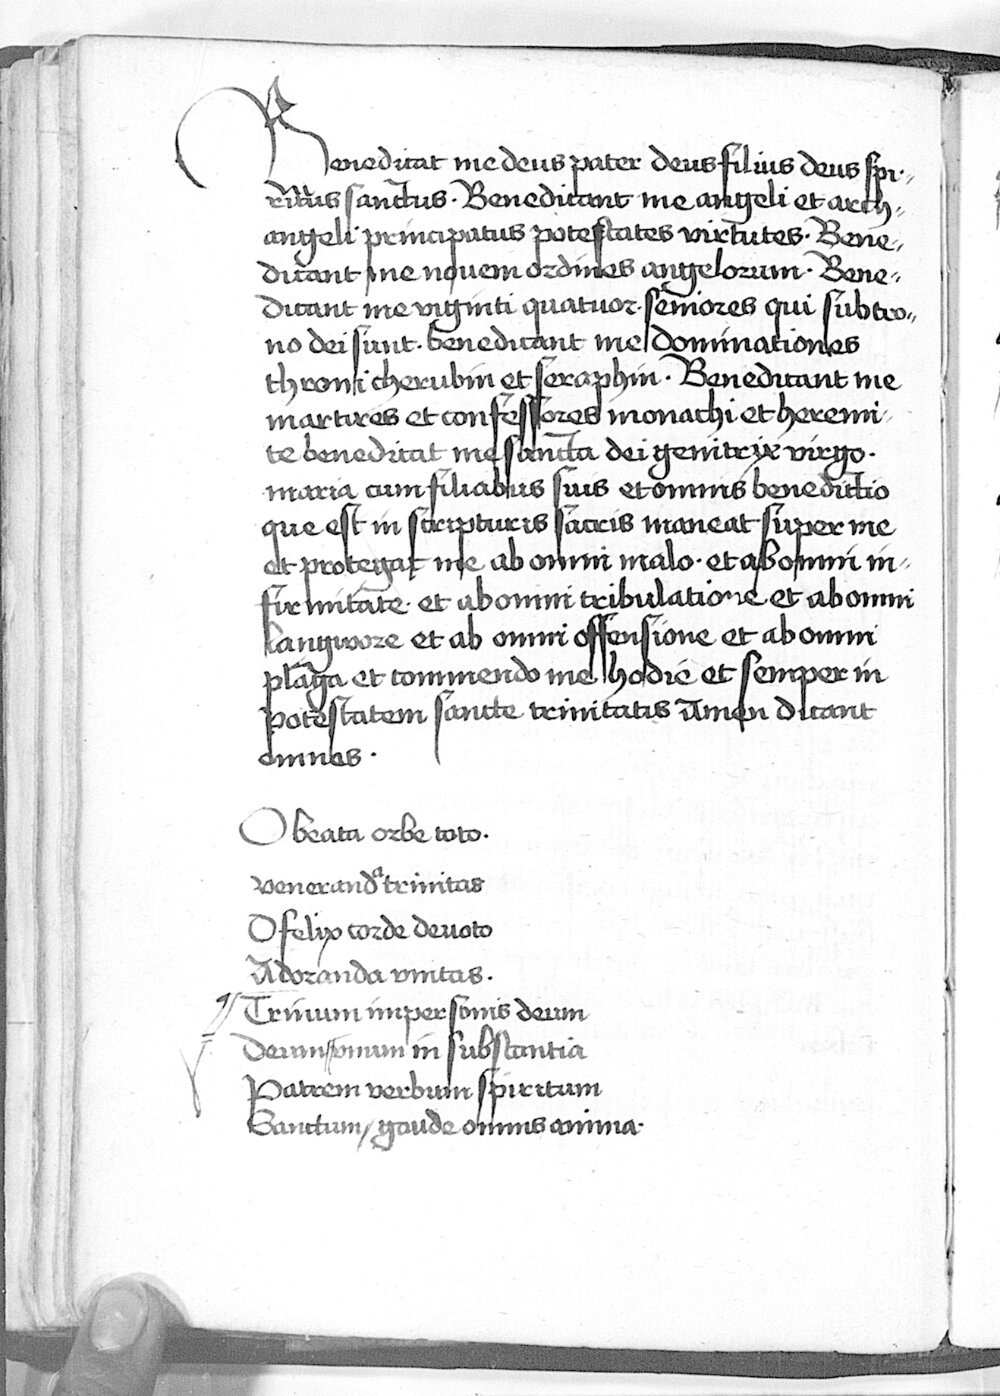 Benedicat me deus pater deus filius deus spi-
ritus sanctus. Benedicant me angeli et arch-
angeli principatus potestates virtutes. Bene-
dicant me novem ordines angelorum. Bene-
dicant me viginti quatuor seniores qui sub tro-
no dei sunt. benedicant me dominationes
throni cherubin et seraphin. Benedicant me
martires et confessores monachi et heremi-
te benedicat me sancta dei genitrix virgo.
maria cum filiabus suis et omnis benedictio
que est in scripturis sacris maneat super me
et protegat me ab omni malo. et ab omni in-
firmitate et ab omni tribulatione et ab omni
langwore et ab omni offensione et ab omni
plaga et commendo me hodie et semper in
potestatem sancte trinitatis Amen dicant
omnes.
O beata orbe toto.
veneranda trinitas
O felix corde devoto
Adoranda unitas.
Trinum in personis deum
Deum unum in substantia
Patrem verbum spiritum
Sanctum / gaude omnis anima.